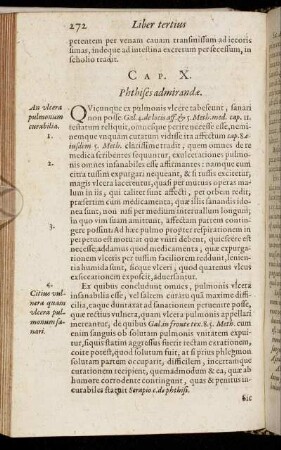 272 Liber tertius
petentem per venam cauam transmissam ad iecoris
simas, indeque ad intestina excretum per secessum, in
scholio tradit.
CAP. X.
Phthises admirandæ.
An vlcera
pulmonum
curabilia.
QVicunque ex pulmonis vlcere tabescunt, sanari
non posse Gal. 4. de locis aff. & 5. Meth. med. cap. 11.
testatum reliquit, omnesque perire necesse esse, nemi-
nemque vnquam curatum vidisse
eiusdem 5. Meth. clarissime tradit; omnes de
re medica scribentes sequuntur, exulcerationes pulmo-
1.
2.
3.
4.
Citius vul-
nera quam
vlcera pul-
monum sa-
nari.
nis omnes insanabiles esse affirmantes: nam quoniam
cum ea tussim expurgari nequeant, & si tussis excitetur,
magis vlcera lacerentur, quasi per mutuos operas ma-
lum in iis, qui taliter sunt affecti, per orbem redit, præ-
sertim cum medicamenta, quæ illis sanandis idonea
sunt, non nisi per medium interuallum longum,
in quo vim suam amittunt, affectam partem contin-
gere possint: Ad hæc pulmo propter respirationem in
perpetuo est motu: at quæ vniri debent, quiescere est
necesse; adhæc quod medicamenta, quæ expurga-
tionem vlceris per tussim faciliorem reddunt, lenien-
tia humida sint, siccaque vlceri, quod quatenus vlcus
exsiccationem exposcit, aduersantur.
Ex quibus concludunt omnes, pulmonis vlcera
insanabilia esse, vel saltem curatu qua maximo diffi-
cilia, eaque duntaxat ad sanationem peruenire posse,
quæ rectius vulnera, quam vlcera pulmonis appellari
merentur, de quibus Gal. in fronte tex. 8. 5. Meth. cum
enim sanguis ob solutam pulmonis vnitatem exscre-
tur, siquis statim aggressus fuerit tectam curationem,
coire potest, quod solutum fuit, at si prius phlegmon
solutam partem occuparit, difficilem, incertamque
curationem recipient, quemadmodum & ea, quæ ab
humore corrodente contingunt, quas & penitus in-
curabiles statuit Serapio c. de phthisi.
sic